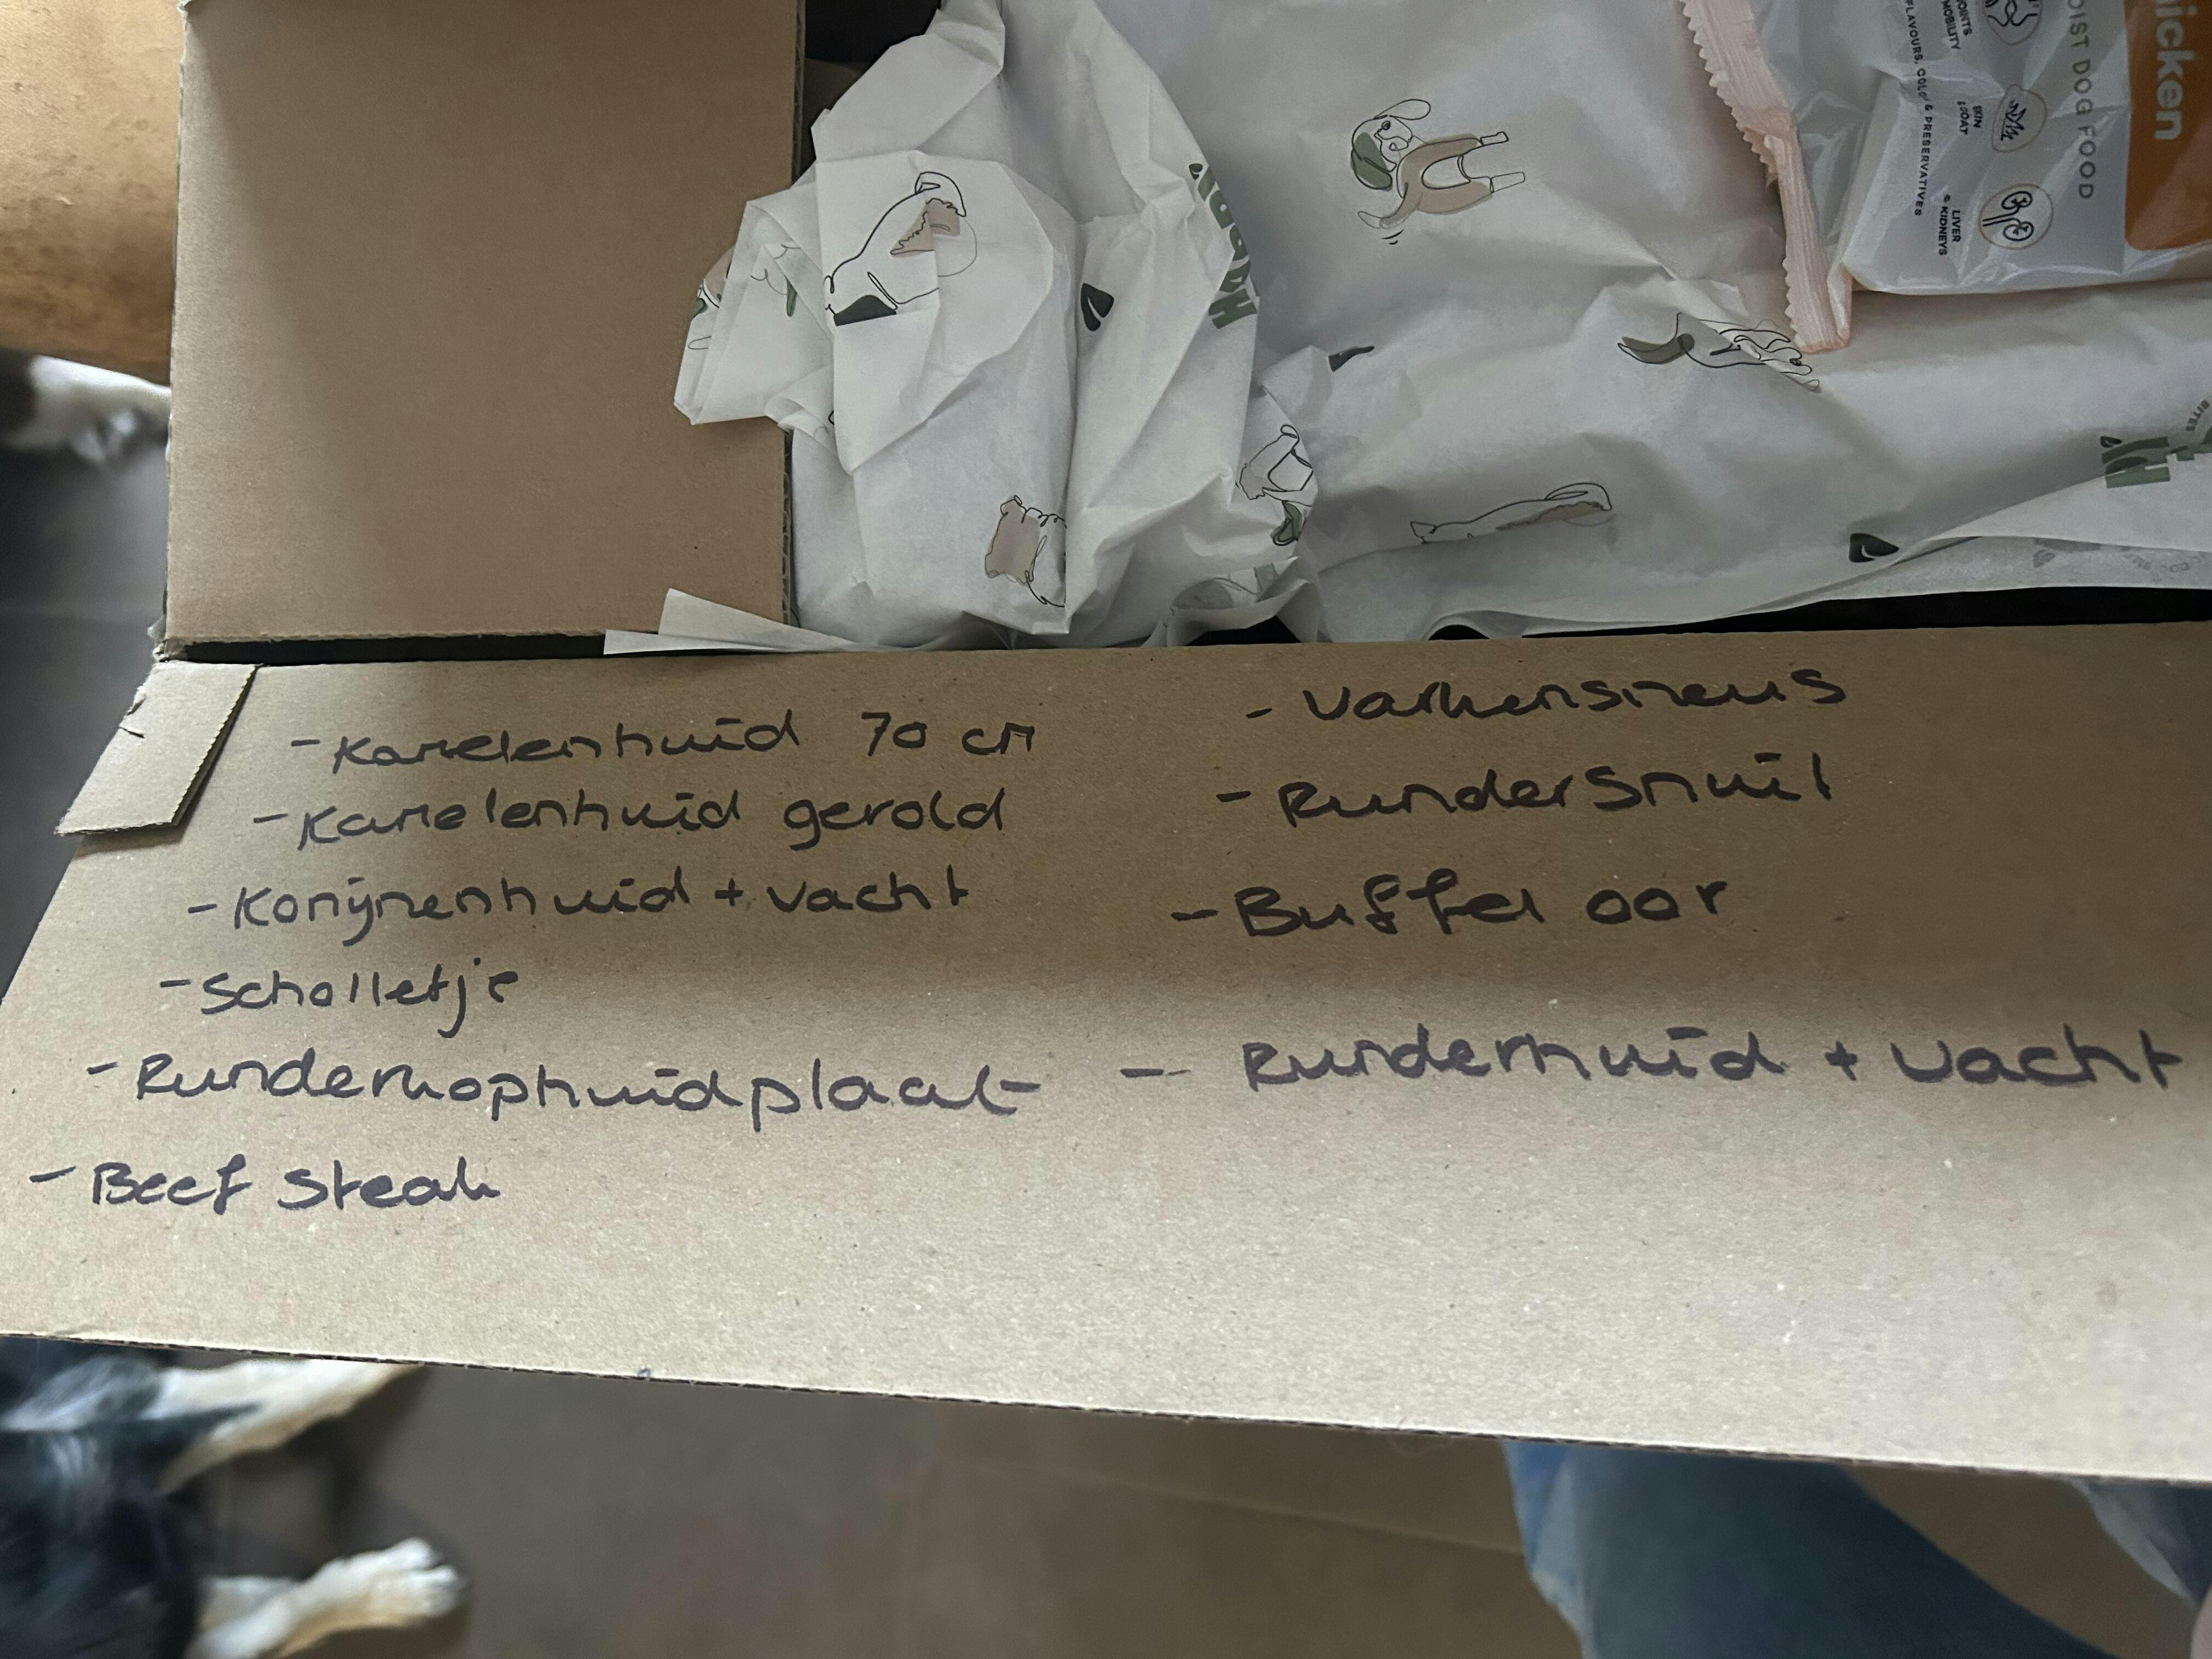 - Kamelenhuid 70 cm
- Kamelenhuid gerold
- Konijnenhuid + vacht
- Scholletje
- Runderkophuidplaat
- Beef steak
- Varkensneus
- Rundersnuit
- Buffel oor
- Runderhuid + vacht
chicken
OIST DOG FOOD
JOINTS
MOBILITY
SKIN
COAT
LIVER
& KIDNEYS
FLAVOURS, COLO & PRESERVATIVES
BITES